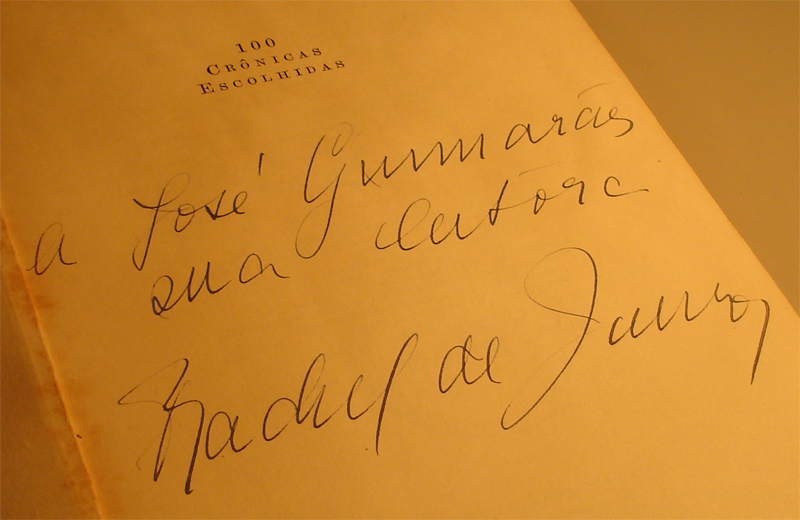 100
CRÔNICAS
ESCOLHIDAS
a José Guimarães
sua autôra
Rachel de Queiroz